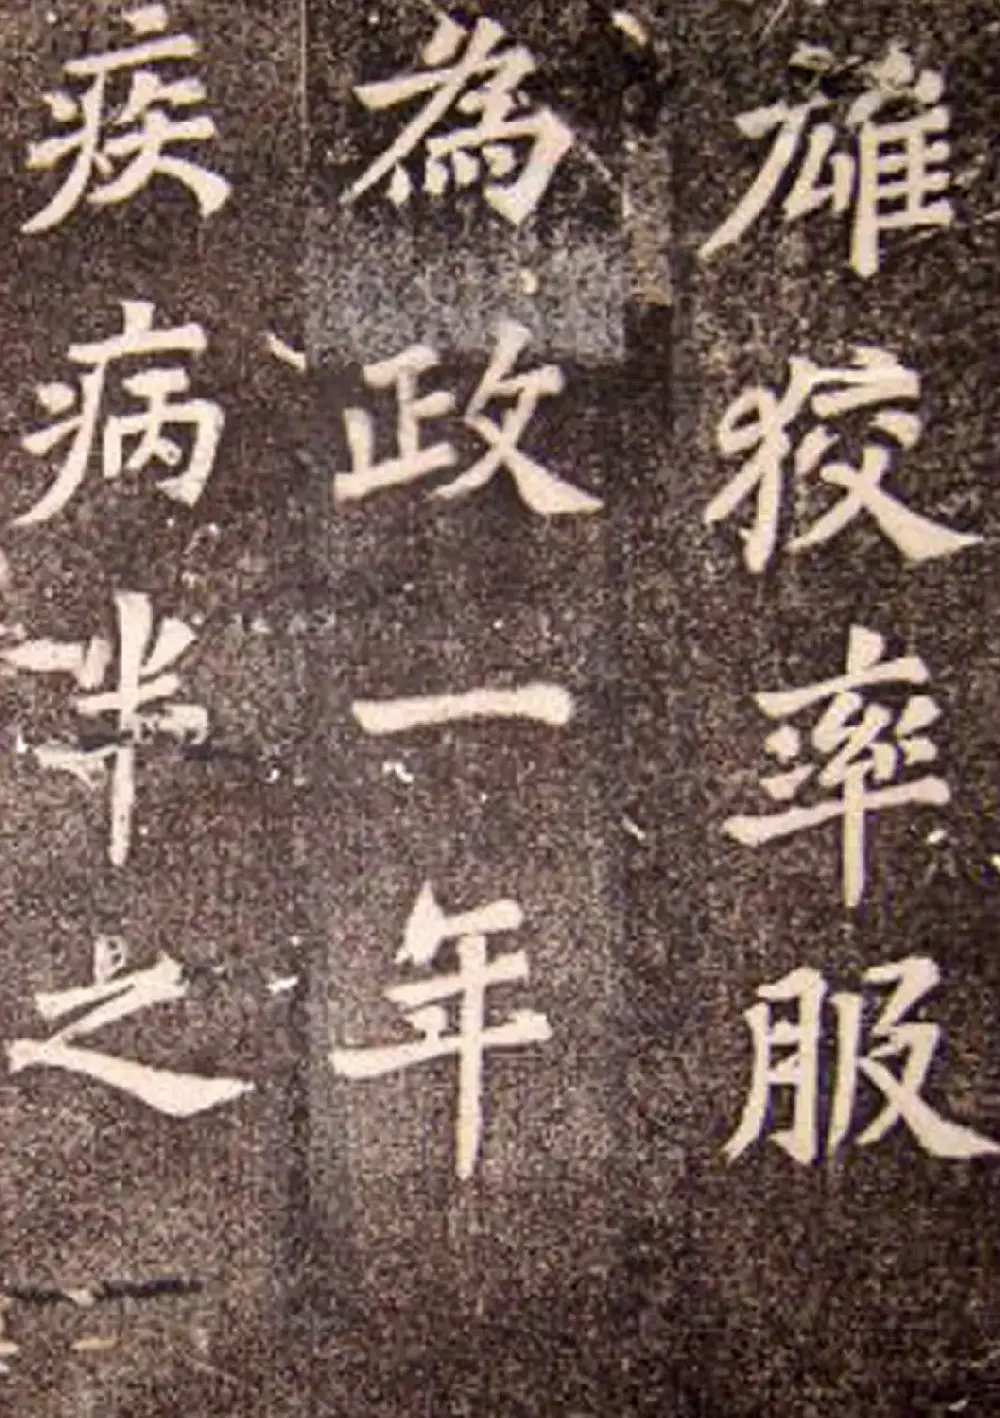 雄狡率服
為政一年
疾病半之